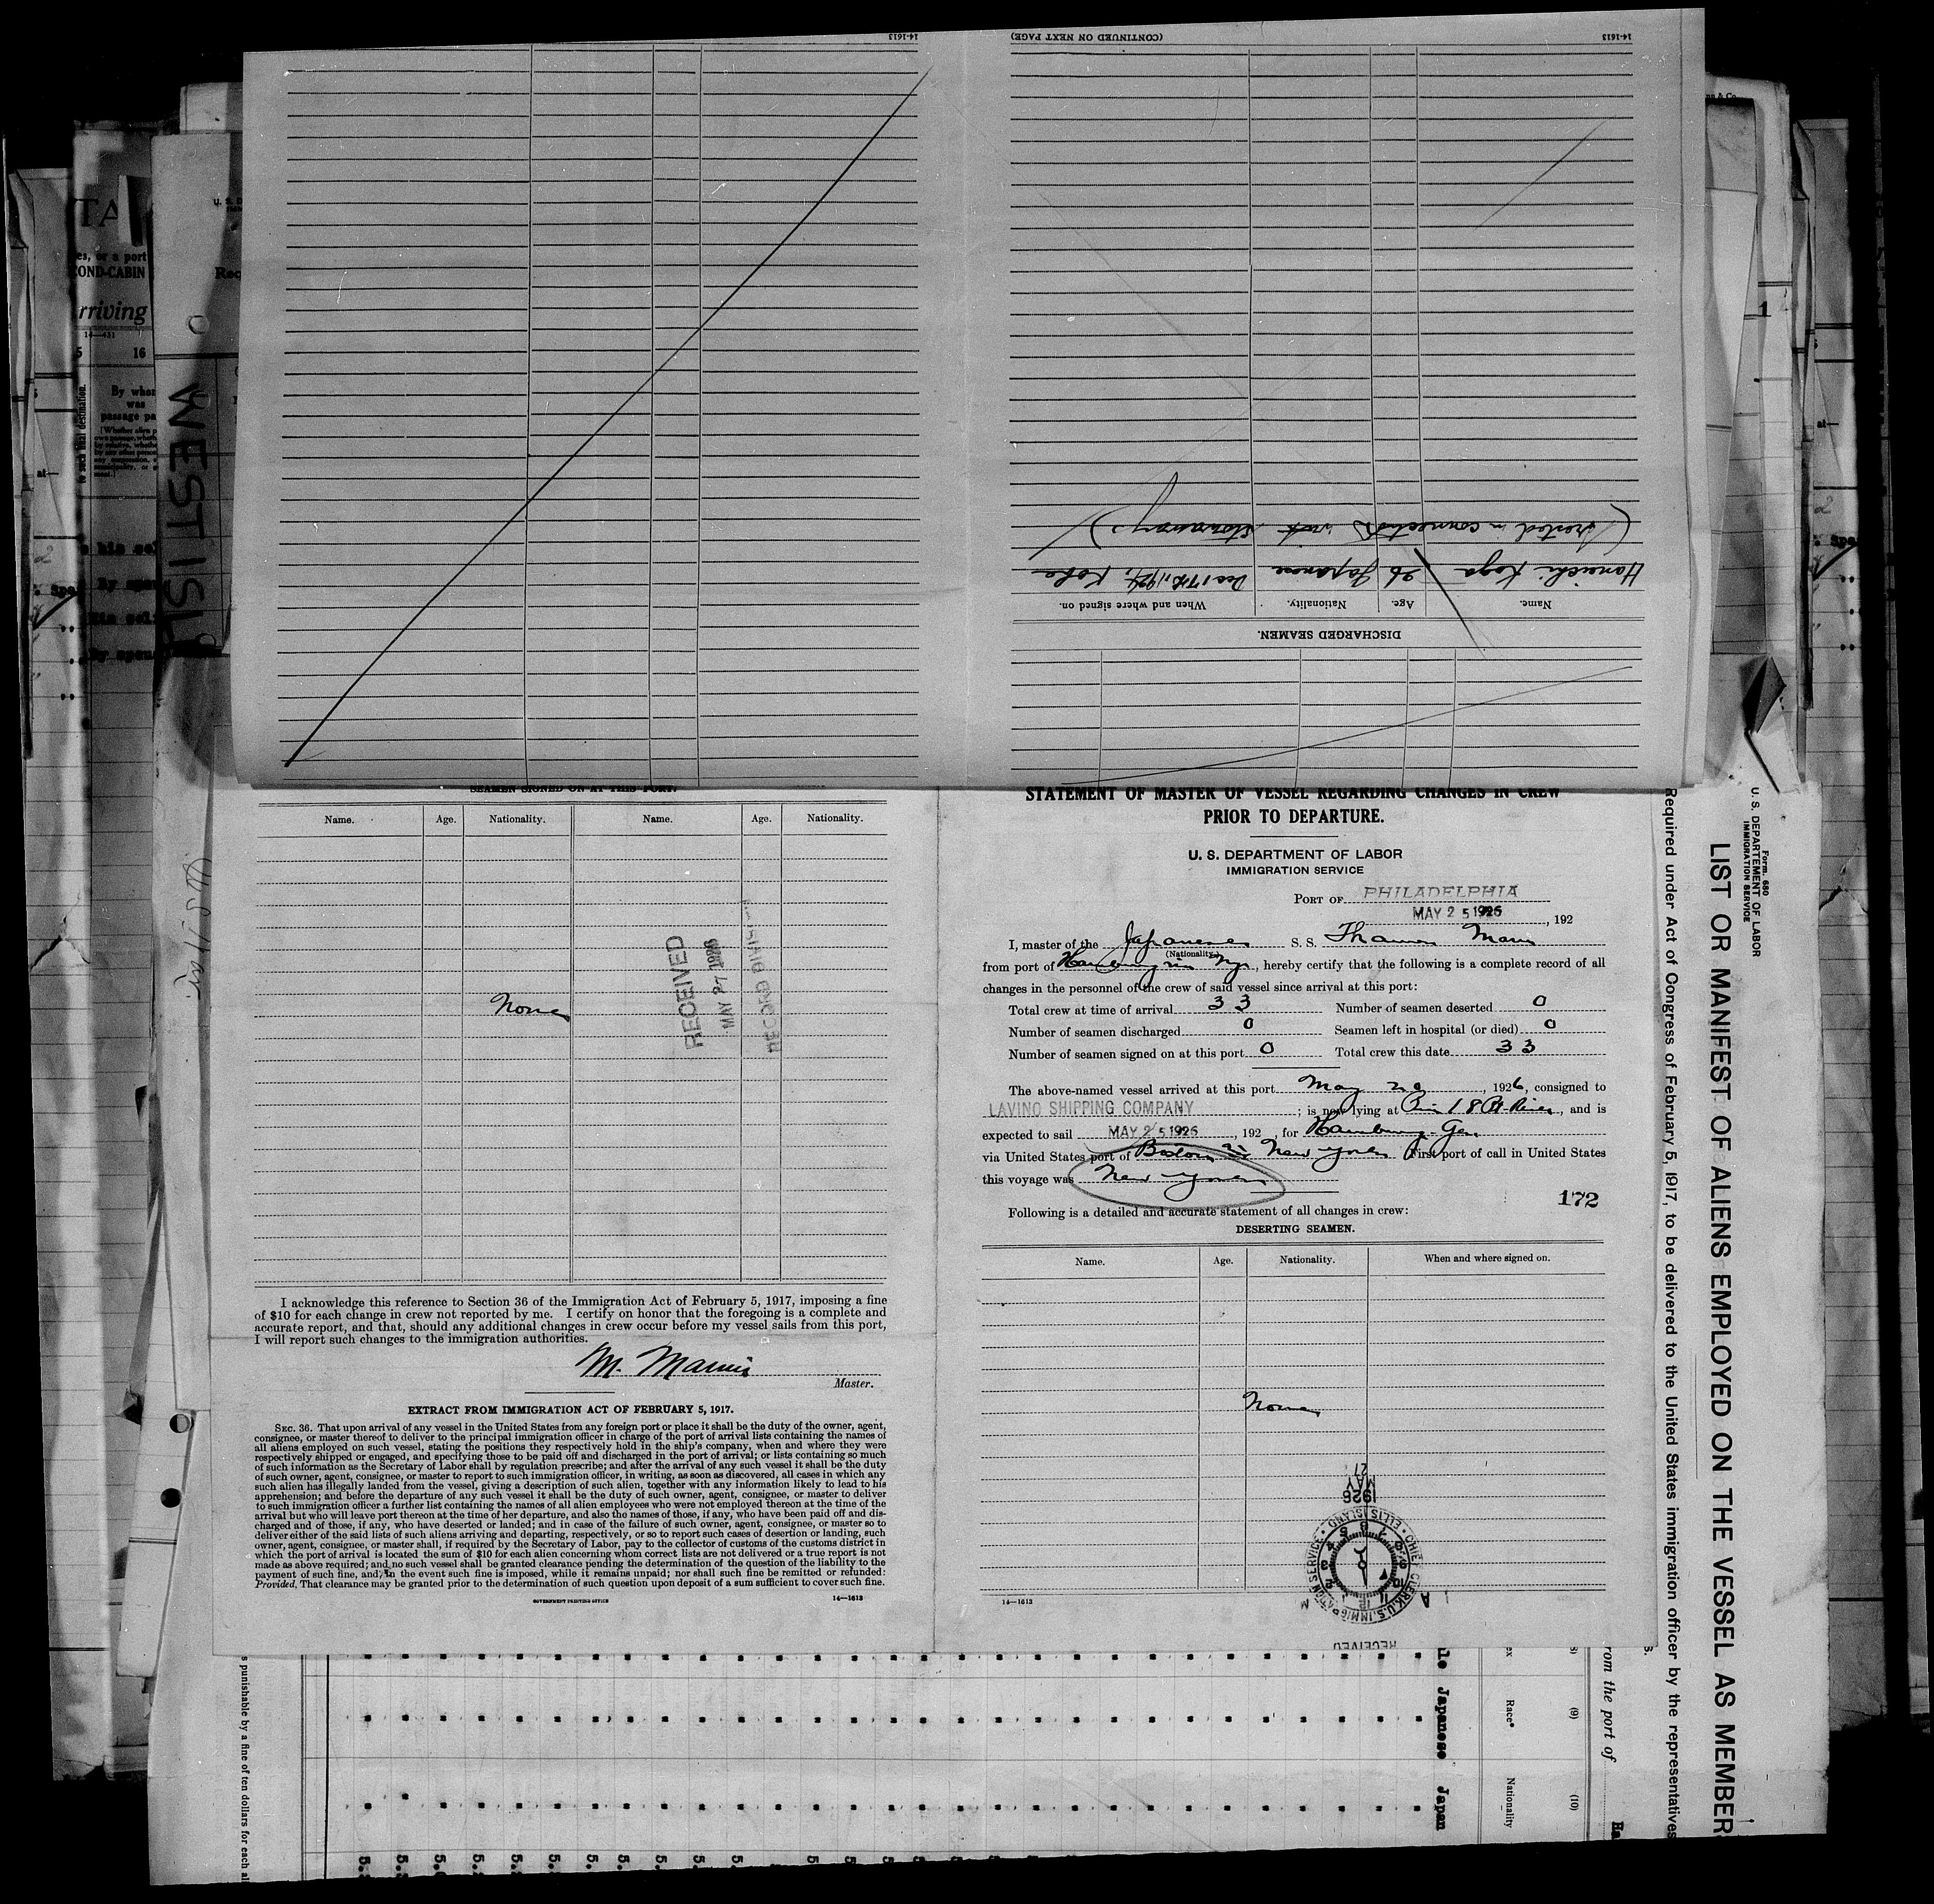 14-1613
(CONTINUED ON NEXT PAGE)
14-1613
DISCHARGED SEAMEN.
Name. Age. Nationality. When and where signed on.
Koga 26 Japanese Dec 17th, 1924, Kobe
in connection with stowaway)
SEAMEN SIGNED ON AT THIS PORT.
Name. Age. Nationality. Name. Age. Nationality.
None
RECEIVED
MAY 27 1926
RECORD DIVISION
I acknowledge this reference to Section 36 of the Immigration Act of February 5, 1917, imposing a fine
of $10 for each change in crew not reported by me. I certify on honor that the foregoing is a complete and
accurate report, and that, should any additional changes in crew occur before my vessel sails from this port,
I will report such changes to the immigration authorities.
M.
Master.
EXTRACT FROM IMMIGRATION ACT OF FEBRUARY 5, 1917.
SEC. 36. That upon arrival of any vessel in the United States from any foreign port or place it shall be the duty of the owner, agent,
consignee, or master thereof to deliver to the principal immigration officer in charge of the port of arrival lists containing the names of
all aliens employed on such vessel, stating the positions they respectively hold in the ship's company, when and where they were
respectively shipped or engaged, and specifying those to be paid off and discharged in the port of arrival; or lists containing so much
of such information as the Secretary of Labor shall by regulation prescribe; and after the arrival of any such vessel it shall be the duty
of such owner, agent, consignee, or master to report to such immigration officer, in writing, as soon as discovered, all cases in which any
such alien has illegally landed from the vessel, giving a description of such alien, together with any information likely to lead to his
apprehension; and before the departure of any such vessel it shall be the duty of such owner, agent, consignee, or master to deliver
to such immigration officer a further list containing the names of all alien employees who were not employed thereon at the time of the
arrival but who will leave port thereon at the time of her departure, and also the names of those, if any, who have been paid off and dis-
charged and of those, if any, who have deserted or landed; and in case of the failure of such owner, agent, consignee, or master so to
deliver either of the said lists of such aliens arriving and departing, respectively, or so to report such cases of desertion or landing, such
owner, agent, consignee, or master shall, if required by the Secretary of Labor, pay to the collector of customs of the customs district in
which the port of arrival is located the sum of $10 for each alien concerning whom correct lists are not delivered or a true report is not
made as above required; and no such vessel shall be granted clearance pending the determination of the question of the liability to the
payment of such fine, and, in the event such fine is imposed, while it remains unpaid; nor shall such fine be remitted or refunded:
Provided, That clearance may be granted prior to the determination of such question upon deposit of a sum sufficient to cover such fine.
GOVERNMENT PRINTING OFFICE 14—1613
STATEMENT OF MASTER OF VESSEL REGARDING CHANGES IN CREW
PRIOR TO DEPARTURE.
U. S. DEPARTMENT OF LABOR
IMMIGRATION SERVICE
PORT OF PHILADELPHIA
MAY 25 1926, 192
I, master of the Japanese S. S. Maru
(Nationality)
from port of Hamburg via , hereby certify that the following is a complete record of all
changes in the personnel of the crew of said vessel since arrival at this port:
Total crew at time of arrival 33 Number of seamen deserted 0
Number of seamen discharged 0 Seamen left in hospital (or died) 0
Number of seamen signed on at this port 0 Total crew this date 33
The above-named vessel arrived at this port May 20, 1926, consigned to
LAVINO SHIPPING COMPANY ; is now lying at Pier 18 , and is
expected to sail MAY 25 1926, 192 , for Hamburg. Ger.
via United States port of Boston via New York First port of call in United States
this voyage was New York
172
Following is a detailed and accurate statement of all changes in crew:
DESERTING SEAMEN.
Name. Age. Nationality. When and where signed on.
None
1926
MAY
27
CHIEF CLERK, U.S. IMMIGRATION SERVICE • ELLIS ISLAND •
RECEIVED
14—1613
Form 680
U. S. DEPARTMENT OF LABOR
IMMIGRATION SERVICE
LIST OR MANIFEST OF ALIENS EMPLOYED ON THE VESSEL AS MEMBER
Required under Act of Congress of February 5, 1917, to be delivered to the United States immigration officer by the representatives
rom the port of
(9)
(10)
Race*
Nationality
le Japanese Japan
s punishable by a fine of ten dollars for each al
WESTISH
TA
es, or a port
OND-CABIN
rriving
14—431
16
By whom
was
passage pa